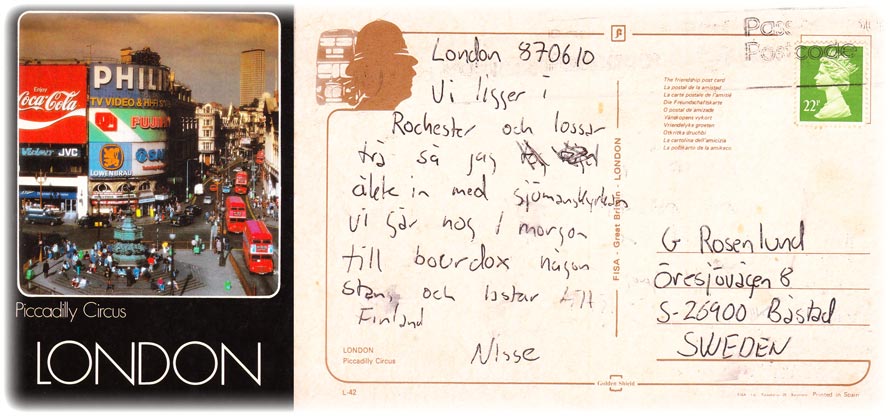 Enjoy
Coca-Cola
PHILI
TV VIDEO & HI-FI
FUJI
JVC
LÖWENBRÄU
Piccadilly Circus
LONDON
London 870610
Vi ligger i
Rochester och lossar
trä så jag
åkte in med sjömanskyrkan
vi går nog i morgon
till bourdox någon
stans och lastar till
Finland
Nisse
LONDON
Piccadilly Circus
L-42
FISA - Great Britain - LONDON
Golden Shield
The friendship post card
La postal de la amistad
La carte postale de l'amitié
Die Freundschaftskarte
O postal de amizade
Vänskapens vykort
Vriendelijke groeten
Otkritka druchbi
La cartolina dell'amicizia
Pass
Postcode
22P
G Rosenlund
Öresjövägen 8
S-26900 Båstad
SWEDEN
Printed in Spain